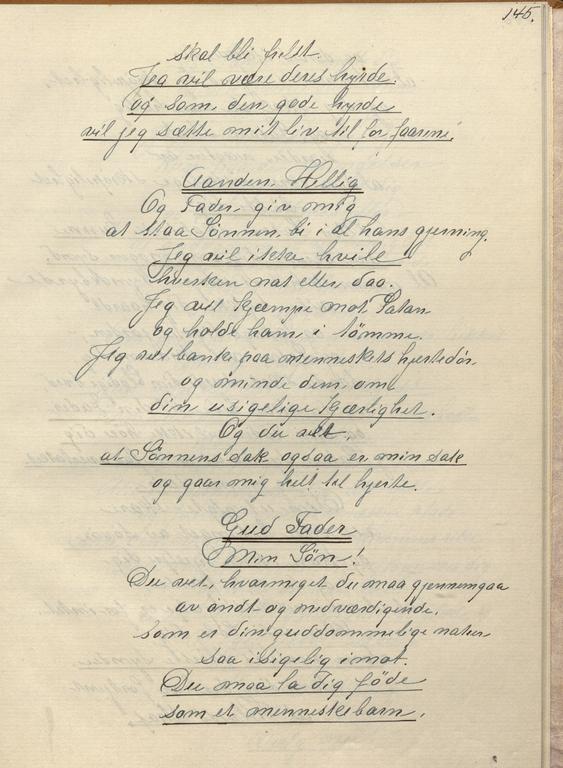 145.
skal bli frelst.
Jeg vil være deres hyrde
og som den gode hyrde
vil jeg sætte mit liv til for faarene.
Aanden Hellig
Og Fader, giv mig
at staa Sønnen bi i al hans gjerning.
Jeg vil ikke hvile
hverken nat eller dag.
Jeg vil kjæmpe mot Satan
og holde ham i tømme.
Jeg vil banke paa menneskets hjertedør
og minde dem om
din usigelige kjærlighet.
Og du vet,
at Sønnens sak ogsaa er min sak
og gaar mig helt til hjerte.
Gud Fader
Min Søn!
Du vet, hvormeget du maa gjennemgaa
av ondt og nedværdigende,
som er din guddommelige natur
saa isigelig imot.
Du maa la dig føde
som et menneskebarn,